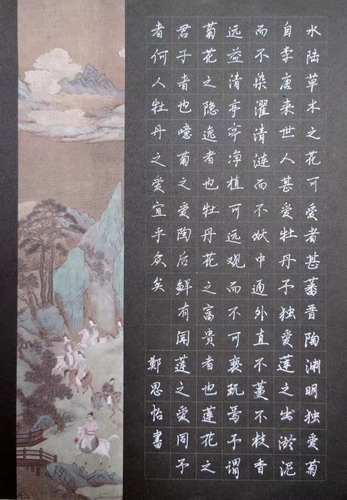 水陆草木之花可爱者甚蕃晋陶渊明独爱菊
自李唐来世人甚爱牡丹予独爱莲之出淤泥
而不染濯清涟而不妖中通外直不蔓不枝香
远益清亭亭净植可远观而不可亵玩焉予谓
菊花之隐逸者也牡丹花之富贵者也莲花之
君子者也噫菊之爱陶后鲜有闻莲之爱同予
者何人牡丹之爱宜乎众矣
鄭思怡書